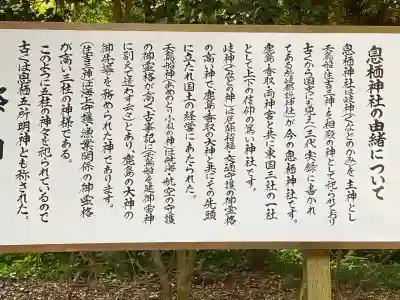 息栖神社の由緒について
息栖神社は岐神(くなどのかみ)を主神とし
天鳥船神 住吉三神を相殿の神として祀られており
古くから国史にも見え(三代実録に書かれ
てある於岐都説神社)が今の息栖神社です。
鹿島 香取 両神宮と共に東国三社の一社
として上下の信仰の篤い神社です。
岐神(くなどの神)は厄除招福・交通守護の御霊格
の高い神で鹿島 香取の大神と共にその先頭
に立たれ国土の経営にあたられた。
天鳥船神(あめのとりふねの神)は航海・航空の守護
の御霊格が高く古事記に(天鳥船を建御雷神
に副えて遣わす云々)とあり、鹿島の大神の
御先導を務められた神であります。
(住吉三神)は海上守護・漁業関係の御霊格
が高い三社の神様である。
このように五社の神々を祀られているので
古くは息栖五所明神とも称された。
祭